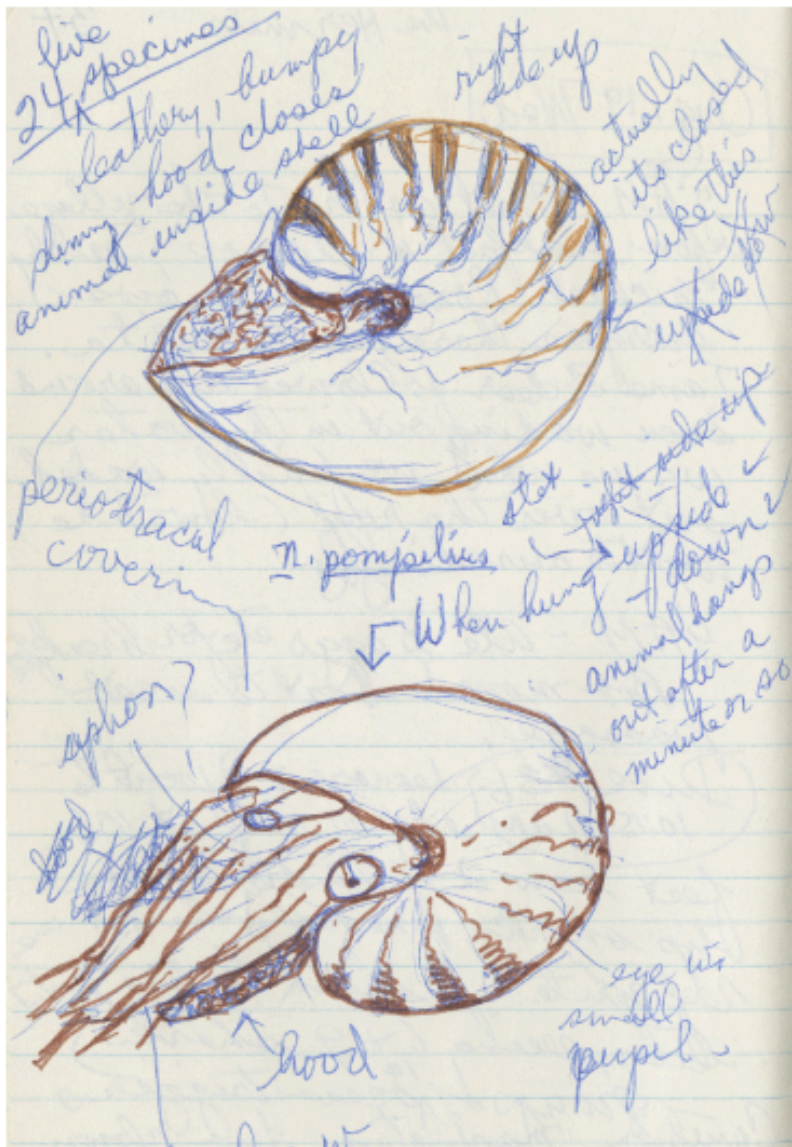 live
24 specimes
leathery, bumpy
slimy hood closes
animal inside shell
right
side up
actually
its closed
like this
upside down
periostracul
coverin
n. pompilius
stet
right side up
When hung upside
down
animal hangs
out after a
minute or so
siphon?
hood
eye w
small
pupil
hood